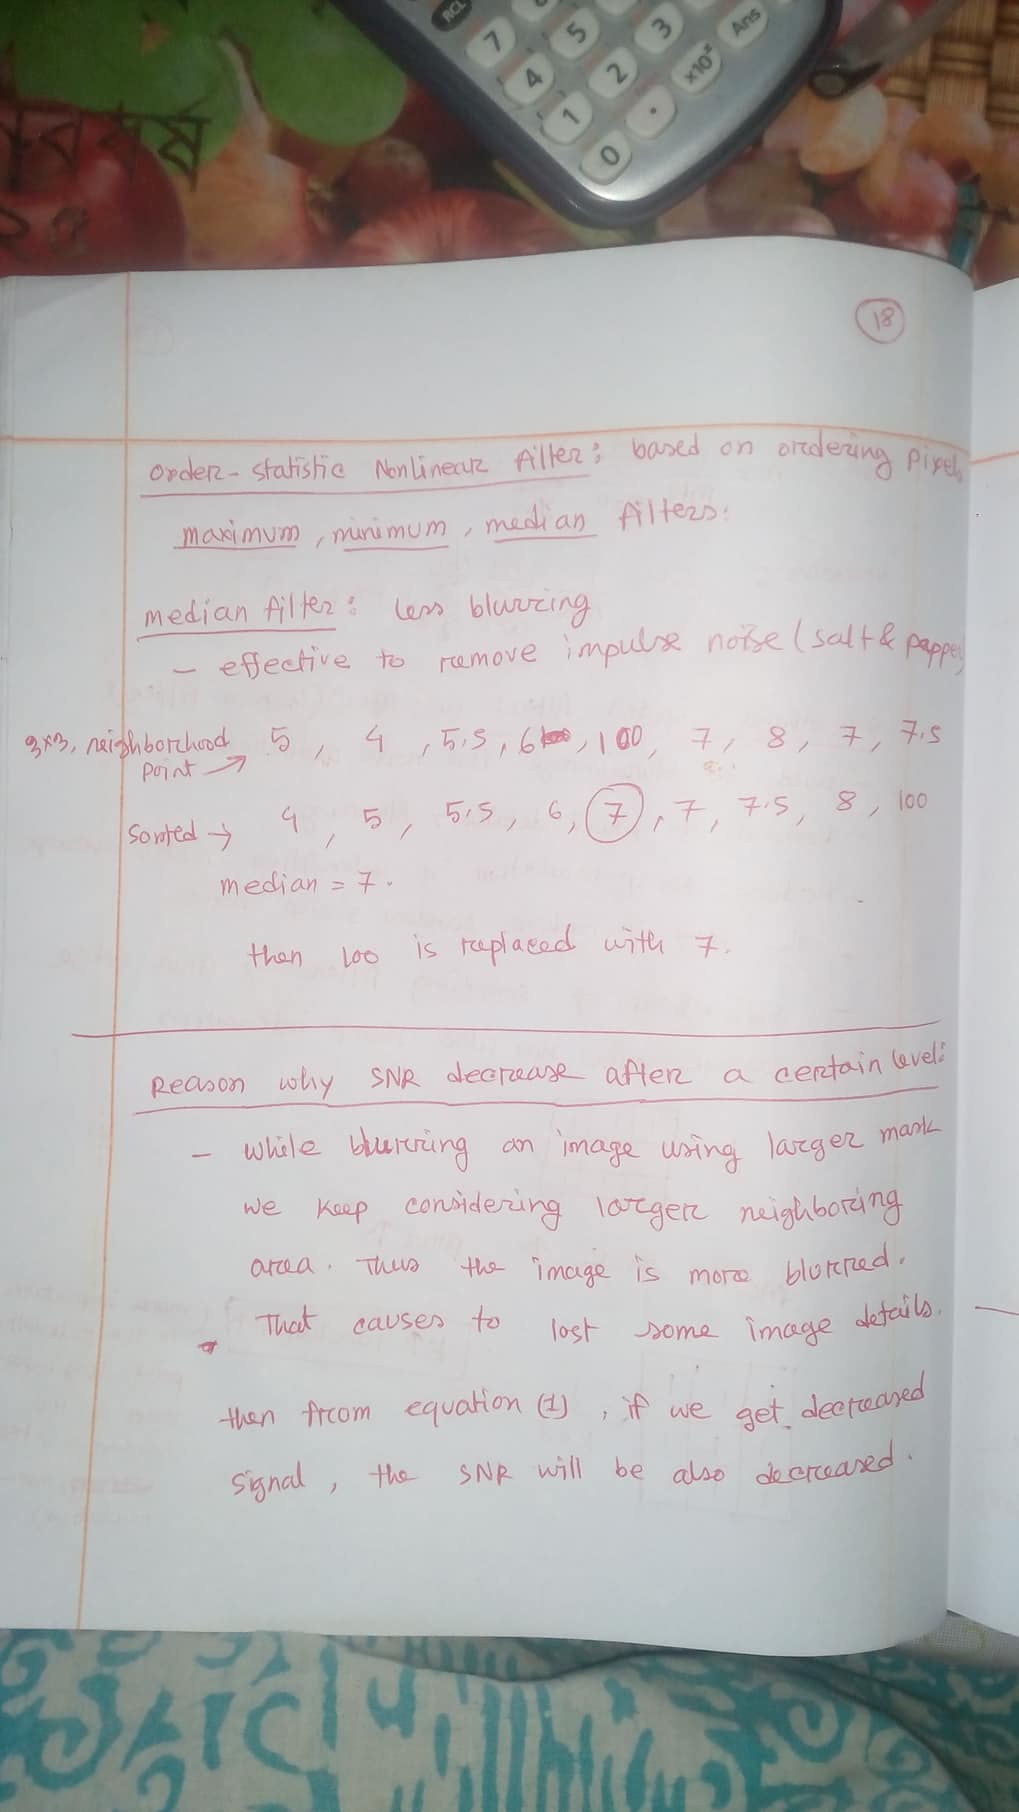 RCL
7
4
5
1
2
3
0
.
×10ˣ
Ans
18
Order-statistic Nonlinear filter: based on ordering pixels
maximum, minimum, median filters:
median filter: Less blurring
- effective to remove impulse noise (salt & pepper)
3×3, neighborhood point → 5, 4, 5.5, 6, 100, 7, 8, 7, 7.5
Sorted → 4, 5, 5.5, 6, 7, 7, 7.5, 8, 100
median = 7.
then 100 is replaced with 7.
Reason why SNR decrease after a certain level:
- while blurring an image using larger mask
we keep considering larger neighboring
area. Thus the image is more blurred.
That causes to lost some image details.
then from equation (1), if we get decreased
signal, the SNR will be also decreased.